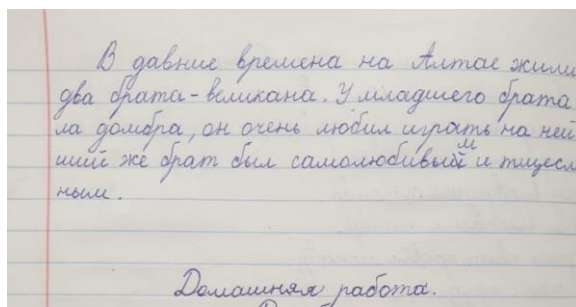 В давние времена на Алтае жили
два брата-великана. У младшего брата
ла домбра, он очень любил играть на ней
ший же брат был самолюбивым и тщесл
ным.
Домашняя работа.